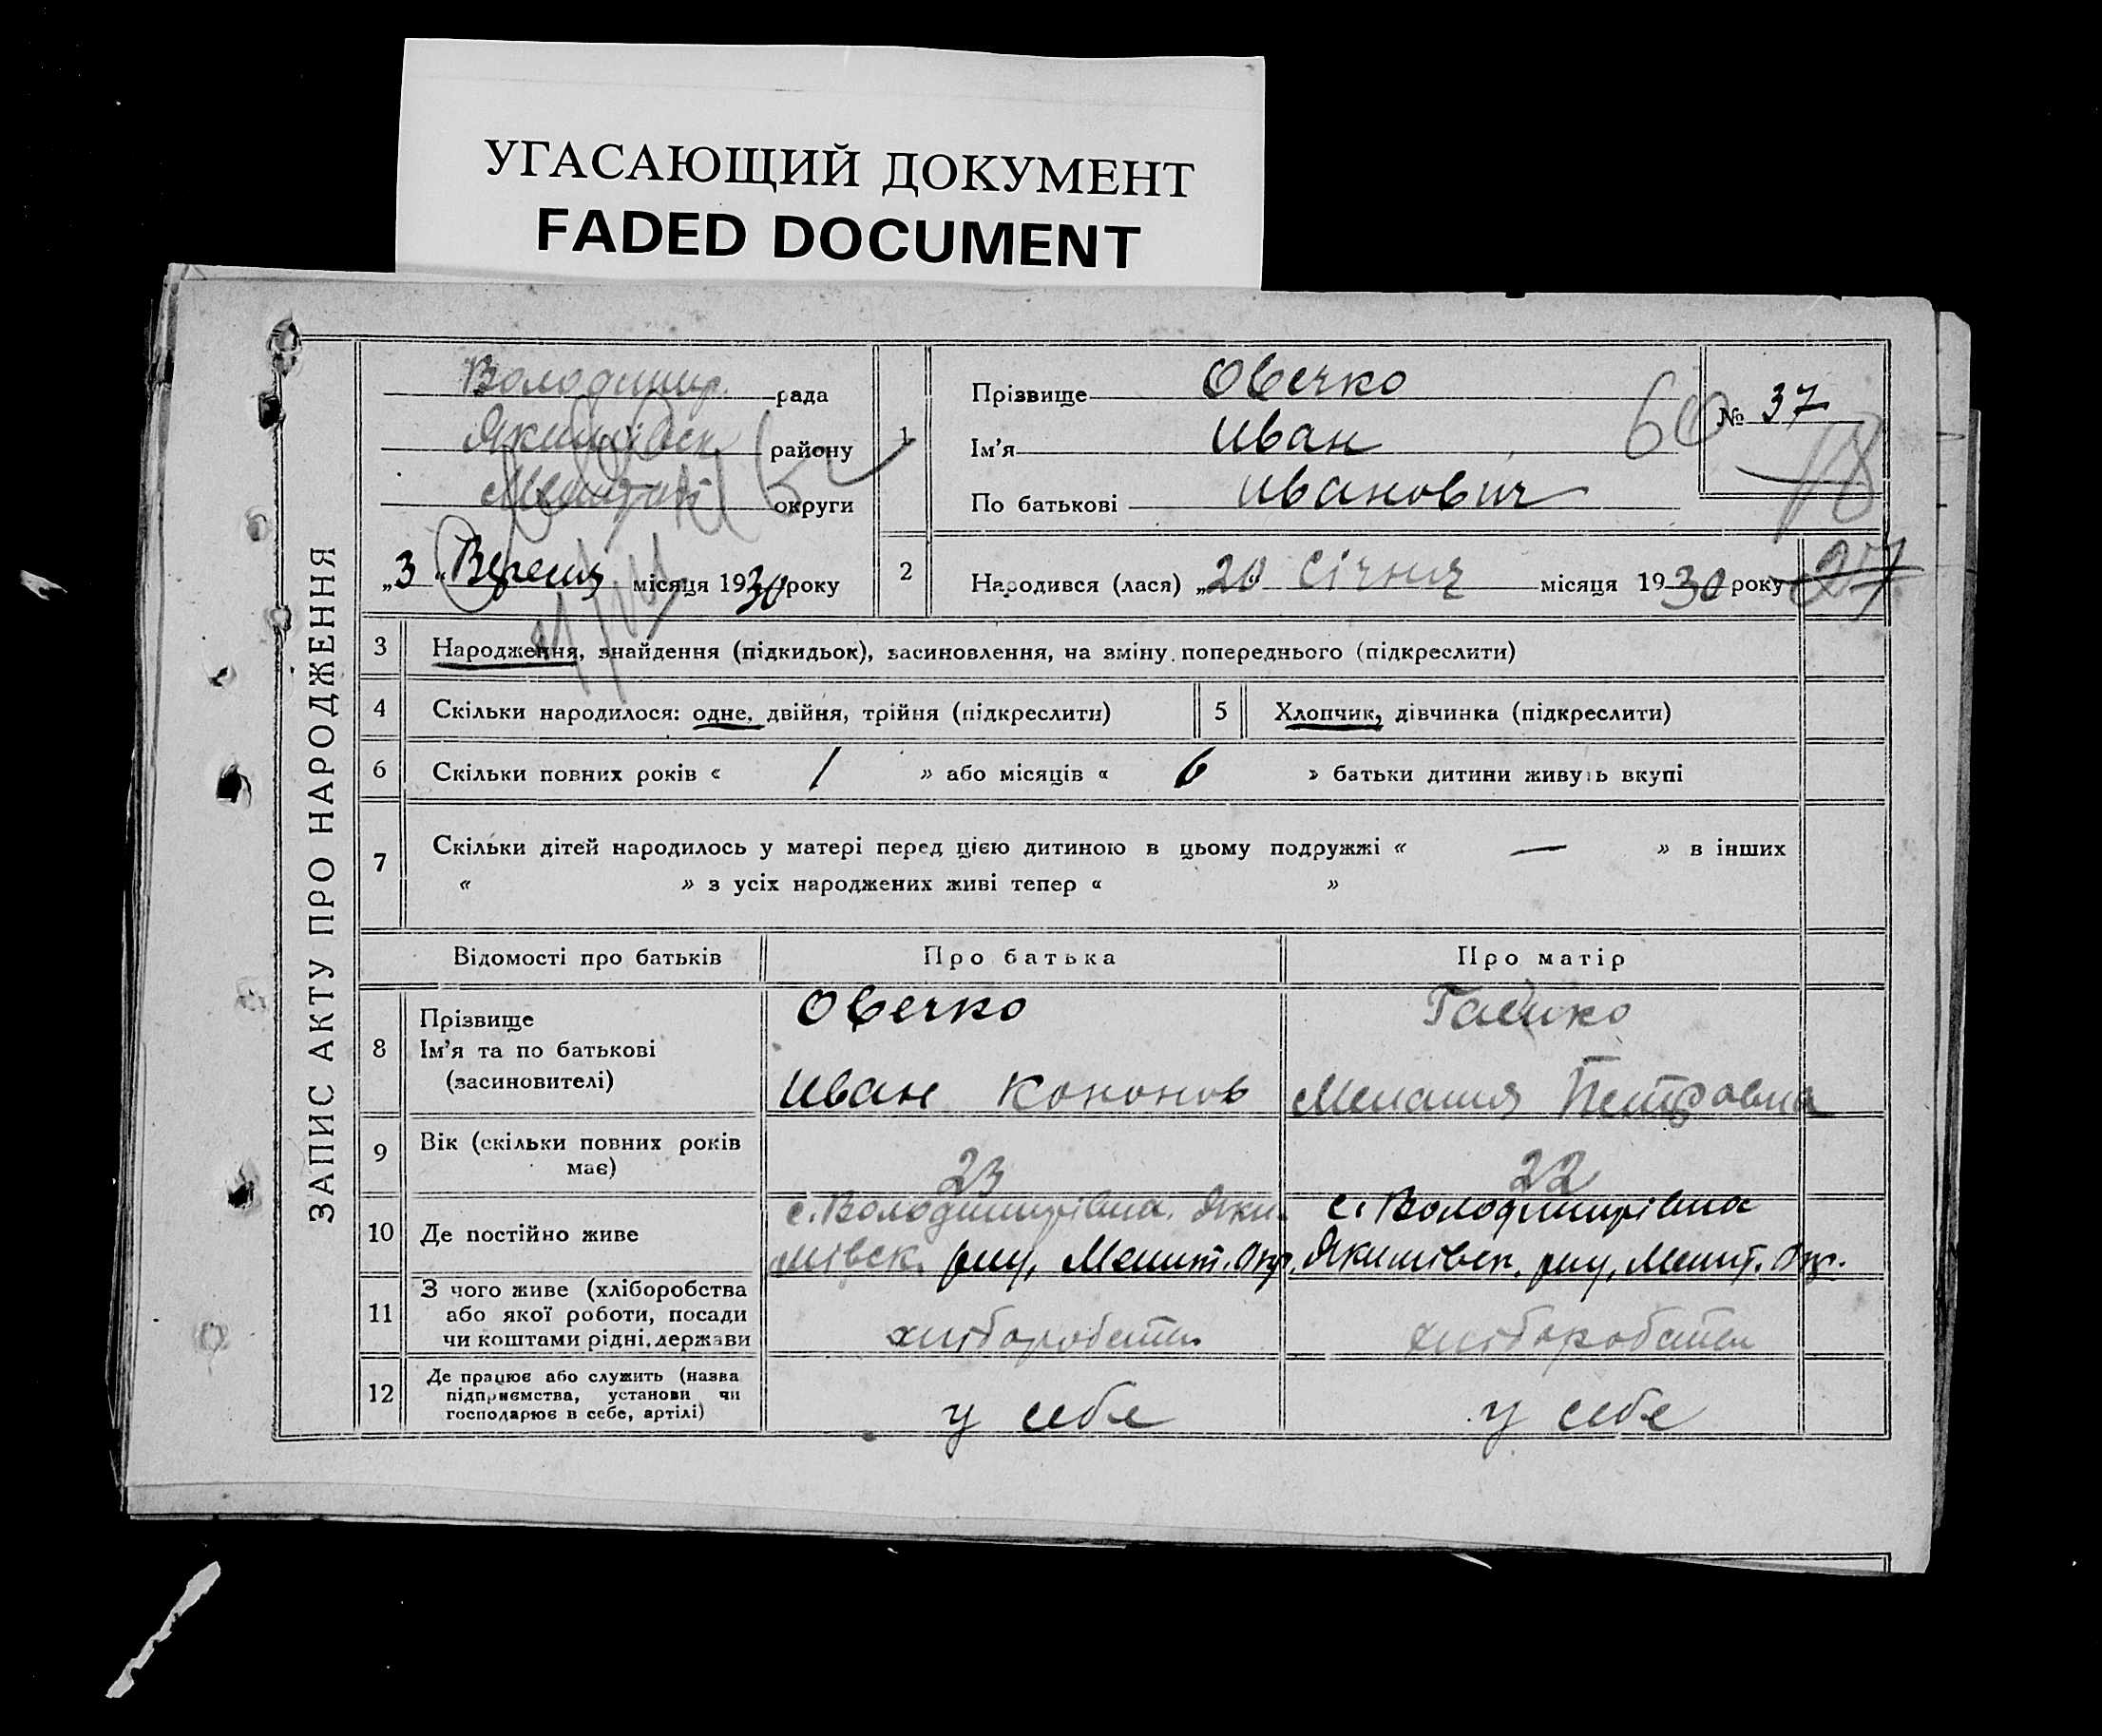 УГАСАЮЩИЙ ДОКУМЕНТ
FADED DOCUMENT
ЗАПИС АКТУ ПРО НАРОДЖЕННЯ
Володимир. рада
Якимівськ району
Мелітоп округи
„3“ Вересня місяця 1930 року
1
Прізвище Овечко
Ім'я Иван
По батькові Иванович
№ 37
60
18
2
Народився (лася) „20 Січня місяця 1930 року
27
3 Народження, знайдення (підкидьок), засиновлення, на зміну попереднього (підкреслити)
4 Скільки народилося: одне, двійня, трійня (підкреслити)
5 Хлопчик, дівчинка (підкреслити)
6 Скільки повних років « 1 » або місяців « 6 » батьки дитини живуть вкупі
7 Скільки дітей народилось у матері перед цією дитиною в цьому подружжі « — » в інших
« » з усіх народжених живі тепер « »
Відомості про батьків Про батька Про матір
8 Прізвище
Ім'я та по батькові
(засиновителі)
Овечко
Иван Кононов
Мелания Петровна
9 Вік (скільки повних років
має)
23
22
10 Де постійно живе
с. Володимирівка. Яки-
мівск. рну, Мелит. Окр.
с. Володимирівка
Якимівск. рну, Мелит. Окр.
11 З чого живе (хліборобства
або якої роботи, посади
чи коштами рідні, держави
хліборобства
хліборобства
12 Де працює або служить (назва
підприємства, установи чи
господарює в себе, артілі)
у себе
у себе